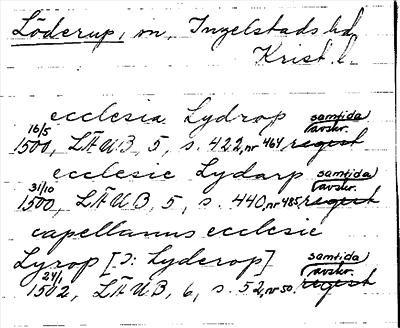 Löderup, sn, Ingelstads hd
Krist. l.
ecclesia Lydrop samtida avskr.
16/5 1500, LÄUB 5, s. 422, nr 464 regest
ecclesie Lydarp samtida avskr.
31/10 1500, LÄUB, 5, s. 440, nr 485, regest
capellanus ecclesie
Lyrop [ɔ: Lyderop] samtida avskr.
24/1 1502, LÄUB, 6, s. 52, nr 50, regest